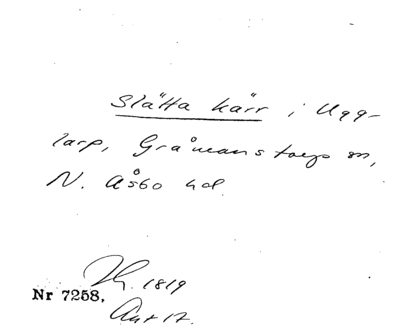 Slätta kärr i Ugg-
larp, Gråmanstorps sn,
N. Åsbo hd.
1819
Nr 7258.
Akt 17.